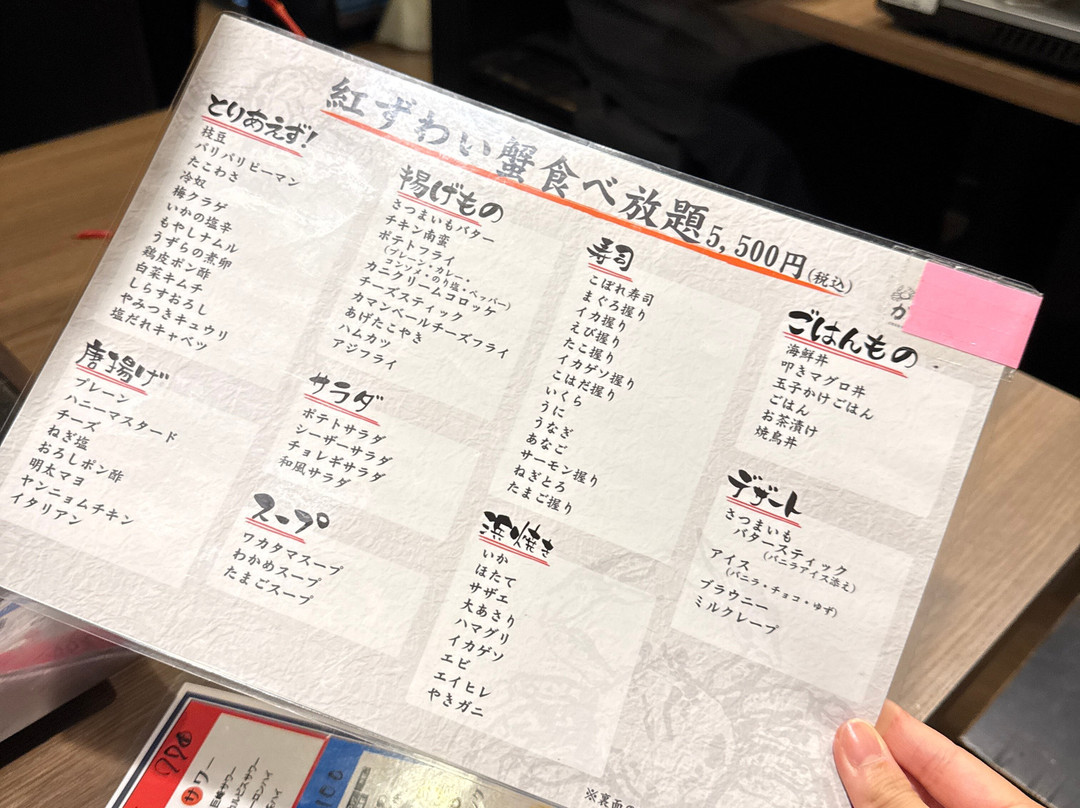 紅ずわい蟹食べ放題5,500円(税込)
とりあえず!
枝豆
パリパリピーマン
たこわさ
冷奴
梅クラゲ
いかの塩辛
もやしナムル
うずらの煮卵
鶏皮ポン酢
白菜キムチ
しらすおろし
やみつきキュウリ
塩だれキャベツ
唐揚げ
プレーン
ハニーマスタード
チーズ
ねぎ塩
おろしポン酢
明太マヨ
ヤンニョムチキン
イタリアン
揚げもの
さつまいもバター
チキン南蛮
ポテトフライ
(プレーン・カレー・
コンソメ・のり塩・ペッパー)
カニクリームコロッケ
チーズスティック
カマンベールチーズフライ
あげたこやき
ハムカツ
アジフライ
サラダ
ポテトサラダ
シーザーサラダ
チョレギサラダ
和風サラダ
スープ
ワカタマスープ
わかめスープ
たまごスープ
寿司
こぼれ寿司
まぐろ握り
イカ握り
えび握り
たこ握り
イカゲソ握り
こはだ握り
いくら
うに
うなぎ
あなご
サーモン握り
ねぎとろ
たまご握り
浜焼き
いか
ほたて
サザエ
大あさり
ハマグリ
イカゲソ
エビ
エイヒレ
やきガニ
ごはんもの
海鮮丼
叩きマグロ丼
玉子かけごはん
ごはん
お茶漬け
焼鳥丼
デザート
さつまいも
バタースティック
(バニラアイス添え)
アイス
(バニラ・チョコ・ゆず)
ブラウニー
ミルクレープ
カ
※裏面の
サワー
カルピスサワー